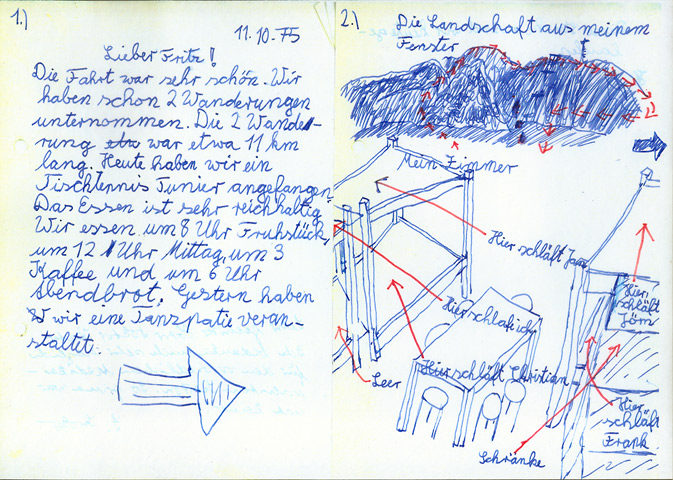 1.)
11.10.75
Lieber Fritz!
Die Fahrt war sehr schön. Wir
haben schon 2 Wanderungen
unternommen. Die 2 Wande-
rung etw war etwa 11 km
lang. Heute haben wir ein
Tischtennis Tunier angefangen.
Das Essen ist sehr reichhaltig.
Wir essen um 8 Uhr Fruhstück,
um 12 Uhr Mittag, um 3
Kaffee und um 6 Uhr
Abendbrot. Gestern haben
wir eine Tanzpatie veran-
staltet.
2.)
Die Landschaft aus meinem
Fenster
Mein Zimmer
Hier schläft Jan
Hier schlafe ich
Hier
schläft
Jörn
Leer
Hier schläft Christian
Hier
schläft
Frank
Schränke